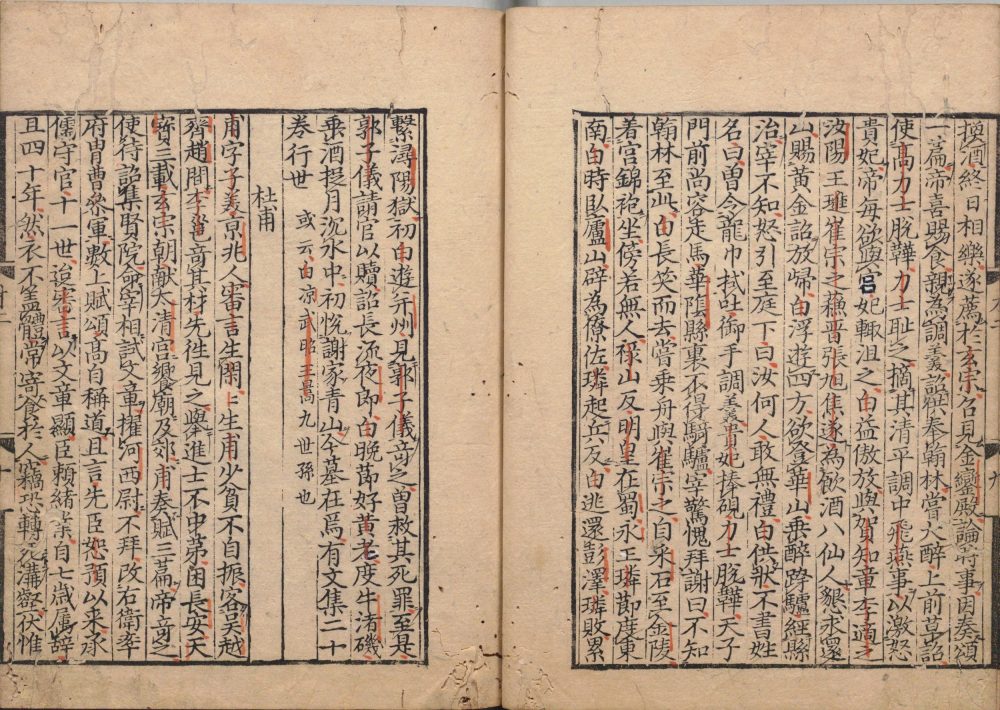 換酒終日相樂遂薦於玄宗召見金鑾殿論時事因奏頌
一篇帝喜賜食親為調羹詔供奉翰林嘗大醉上前草詔
使高力士脫鞾力士耻之摘其清平調中飛燕事以激怒
貴妃帝每欲與官妃輙沮之白益傲放與賀知章李適之
汝陽王璡崔宗之蘇晋張旭焦遂為飲酒八仙人懇求還
山賜黃金詔放帰白浮遊四方欲登華山乗醉跨驢經縣
治宰不知怒引至庭下曰汝何人敢無禮白供狀不書姓
名曰曽令龍巾拭吐御手調羹貴妃捧硯力士脫鞾天子
門前尚容走馬華陰縣裏不得騎驢宰驚愧拜謝曰不知
翰林至此白長笑而去嘗乗舟與崔宗之自采石至金陵
着宮錦袍坐傍若無人禄山反明皇在蜀永王璘節度東
南白時臥廬山辟為僚佐璘起兵反白逃還彭澤璘敗累
繫潯陽獄初白遊并州見郭子儀竒之曽救其死罪至是
郭子儀請官以贖詔長流夜郎白晩節好黃老度牛渚磯
乗酒捉月沉水中初悅謝家青山今墓在焉有文集二十
卷行世 或云白凉武昭王暠九世孫也
杜甫
甫字子美京兆人審言生閑〻生甫少貧不自振客呉越
齊趙間李邕竒其材先徃見之舉進士不中第困長安天
寳三載玄宗朝献太清宮饗廟及郊甫奏賦三篇帝竒之
使待詔集賢院命宰相試文章擢河西尉不拜改右衛率
府冑曹叅軍數上賦頌高自稱道且言先臣恕預以来承
儒守官十一世迨審言以文章顯臣頼緒業自七歲属辭
且四十年然衣不盖體常寄食於人竊恐轉死溝壑伏惟